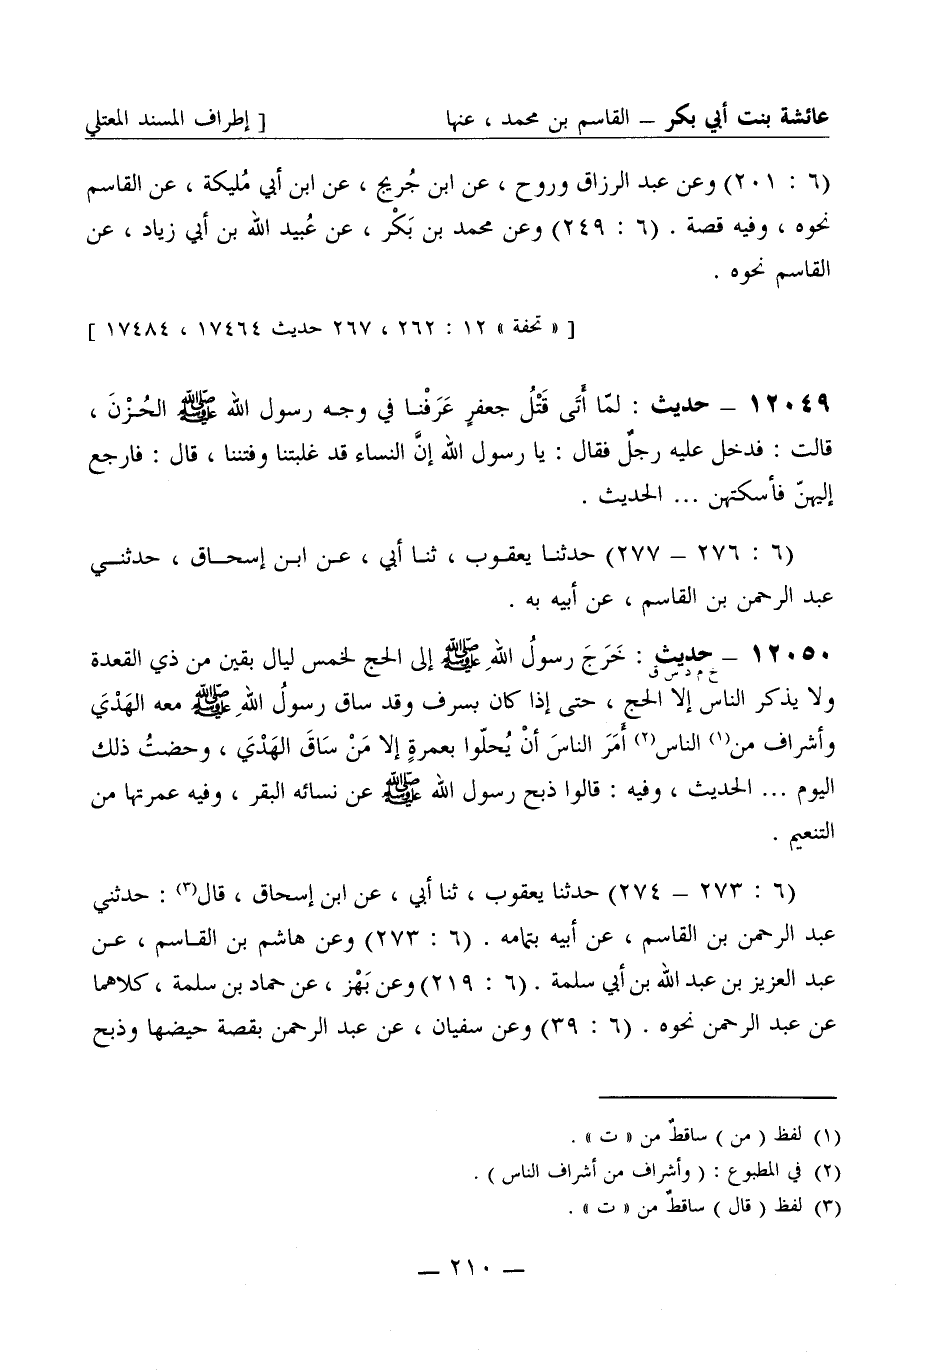 عائشة بنت أبي بكر – القاسم بن محمد ، عنها [ إطراف المسند المعتلي
(٦ : ٢٠١) وعن عبد الرزاق وروح ، عن ابن جُريج ، عن ابن أبي مُليكة ، عن القاسم
نحوه ، وفيه قصة . (٦ : ٢٤٩) وعن محمد بن بَكْر ، عن عُبيد الله بن أبي زياد ، عن
القاسم نحوه .
[ « تحفة » ١٢ : ٢٦٢ ، ٢٦٧ حديث ١٧٤٦٤ ، ١٧٤٨٤ ]
١٢٠٤٩ – حديث : لمّا أَتَى قَتْلُ جعفرٍ عَرَفْنـا في وجـه رسول الله ﷺ الحُـزْنَ ،
قالت : فدخل عليه رجلٌ فقال : يا رسول الله إنَّ النساء قد غلبتنا وفتننا ، قال : فارجع
إليهنّ فأسكتهن ... الحديث .
(٦ : ٢٧٦ – ٢٧٧) حدثنـا يعقـوب ، ثنـا أبي ، عـن ابـن إسحـاق ، حدثنـي
عبد الرحمن بن القاسم ، عن أبيه به .
١٢٠٥٠ – حديث : خَرَجَ رسولُ اللهِ ﷺ إلى الحج لخمس ليال بقين من ذي القعدة
خ م د س ق
ولا يذكر الناس إلا الحج ، حتى إذا كان بسرف وقد ساق رسولُ اللهِ ﷺ معه الهَدْيَ
وأشراف من(١) الناس(٢) أَمَرَ الناسَ أنْ يُحلّوا بعمرةٍ إلا مَنْ سَاقَ الهَدْيَ ، وحضتُ ذلك
اليوم ... الحديث ، وفيه : قالوا ذبح رسول الله ﷺ عن نسائه البقر ، وفيه عمرتها من
التنعيم .
(٦ : ٢٧٣ – ٢٧٤) حدثنا يعقوب ، ثنا أبي ، عن ابن إسحاق ، قال(٣) : حدثني
عبد الرحمن بن القاسم ، عن أبيه بتمامه . (٦ : ٢٧٣) وعن هاشم بن القـاسم ، عـن
عبد العزيز بن عبد الله بن أبي سلمة . (٦ : ٢١٩) وعن بَهْز ، عن حماد بن سلمة ، كلاهما
عن عبد الرحمن نحوه . (٦ : ٣٩) وعن سفيان ، عن عبد الرحمن بقصة حيضها وذبح
(١) لفظ ( من ) ساقطٌ من « ت » .
(٢) في المطبوع : ( وأشراف من أشراف الناس ) .
(٣) لفظ ( قال ) ساقطٌ من « ت » .
– ٢١٠ –